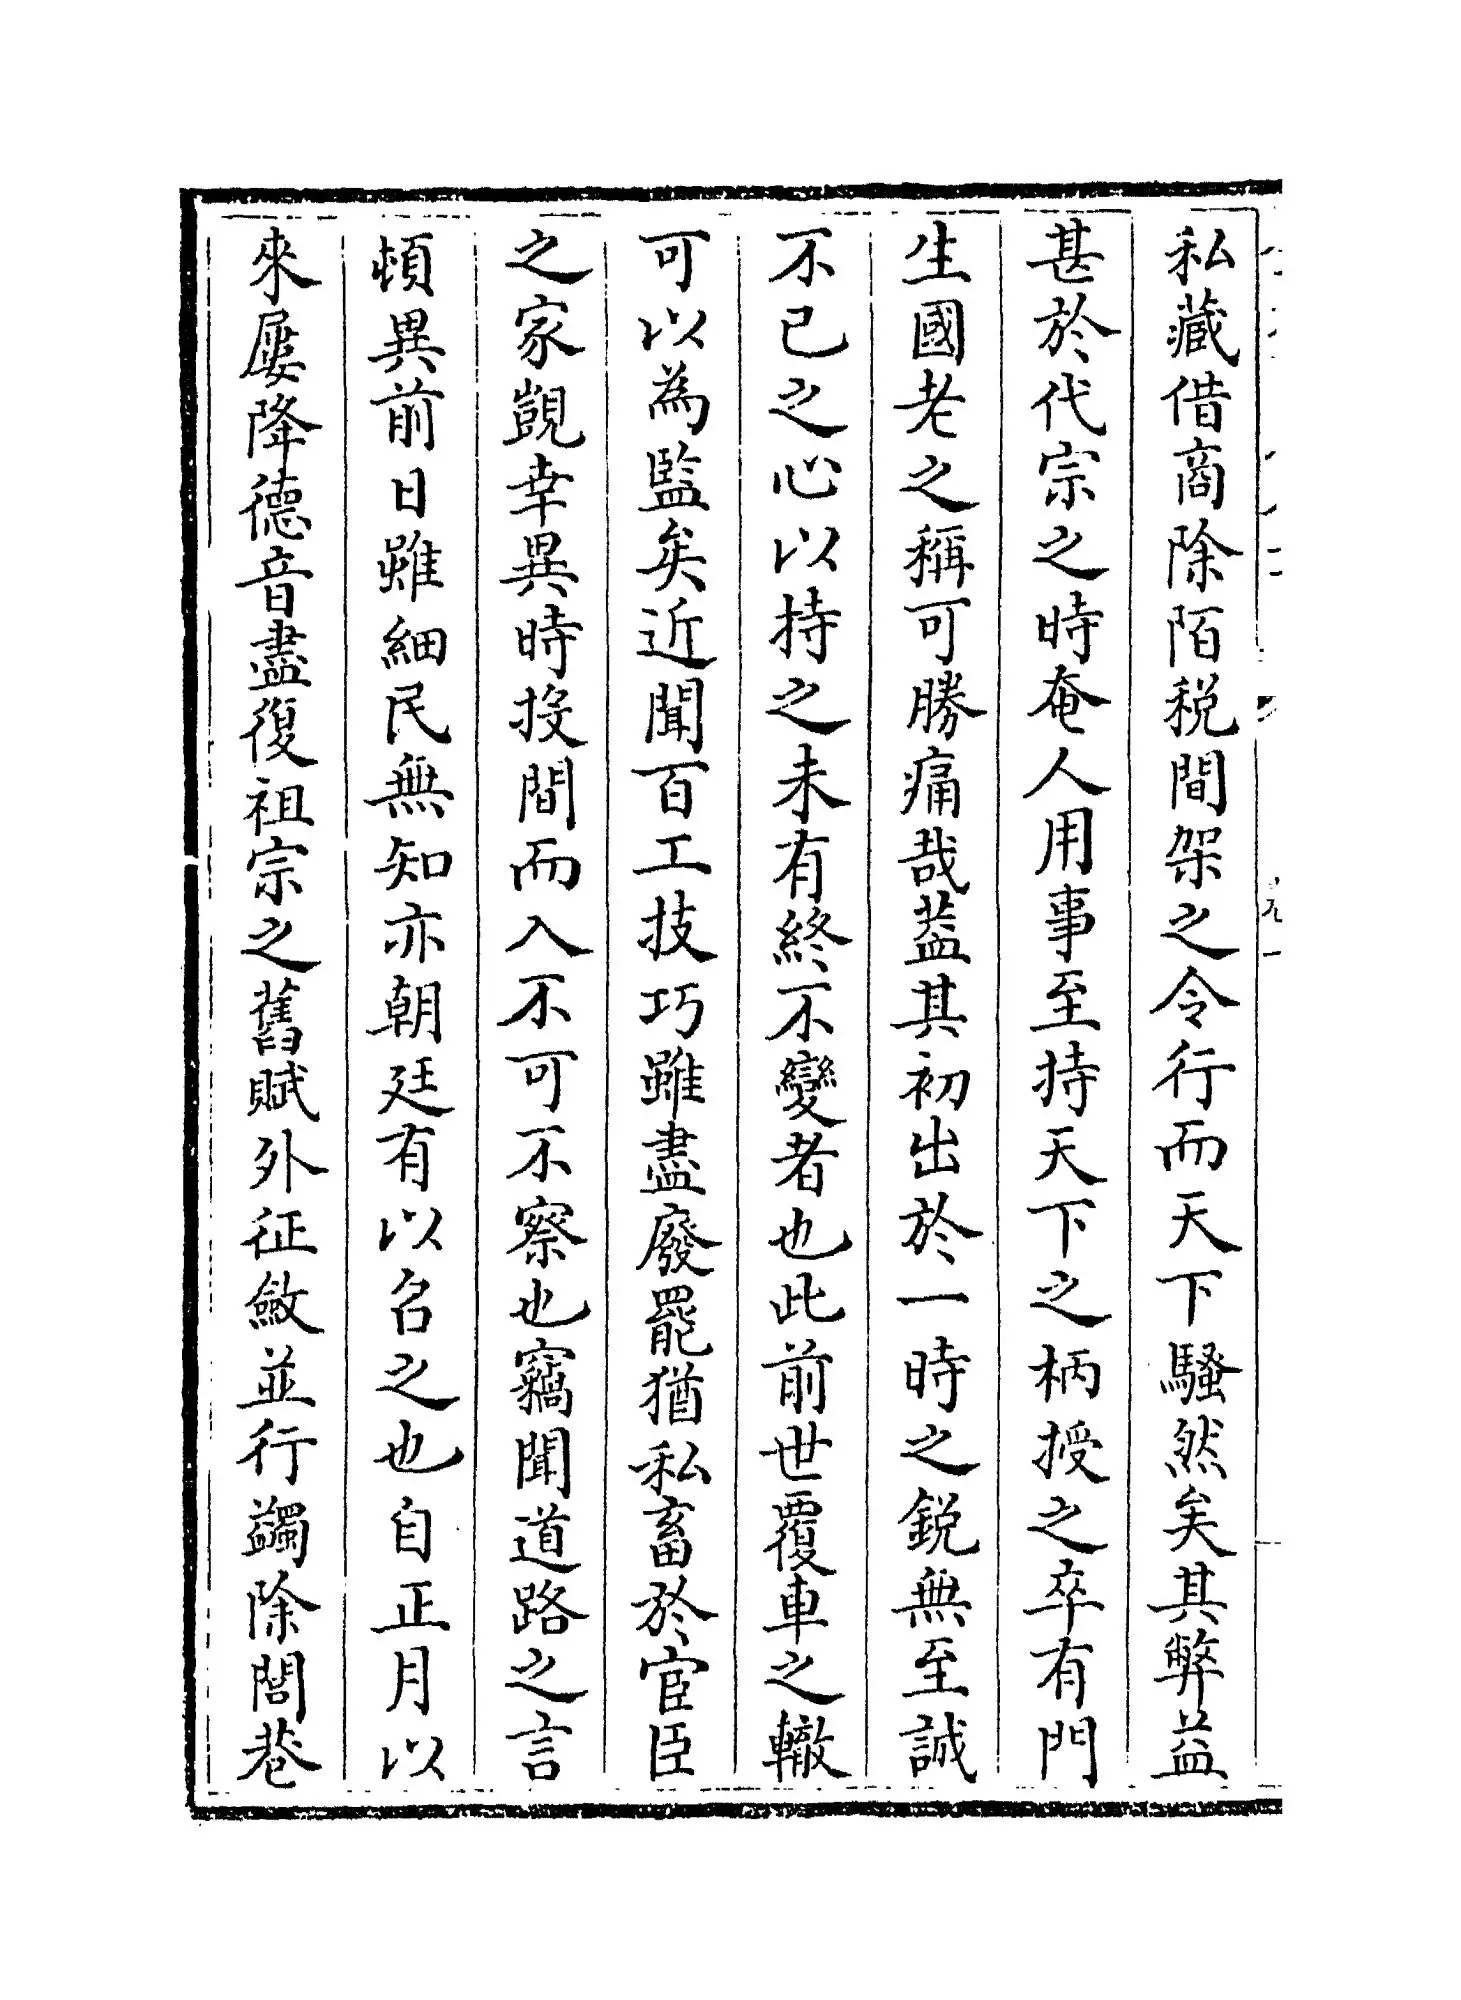 私藏借商除陌税間架之令行而天下騷然矣其弊益
甚於代宗之時奄人用事至持天下之柄授之卒有門
生國老之稱可勝痛哉葢其初出於一時之鋭無至誠
不已之心以持之未有終不變者也此前世覆車之轍
可以為監矣近聞百工技巧雖盡廢罷猶私畜於宦臣
之家覬幸異時投間而入不可不察也竊聞道路之言
頓異前日雖細民無知亦朝廷有以召之也自正月以
來屢降德音盡復祖宗之舊賦外征斂並行蠲除閭巷